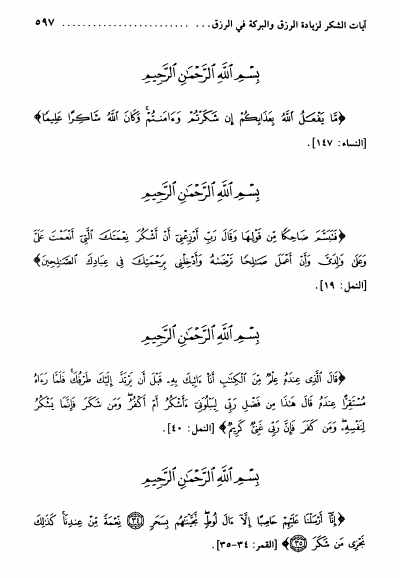 آيات الشكر لزيادة الرزق والبركة في الرزق... ......................... ٥٩٧
بِسْمِ ٱللَّهِ ٱلرَّحْمَٰنِ ٱلرَّحِيمِ
﴿مَّا يَفْعَلُ ٱللَّهُ بِعَذَابِكُمْ إِن شَكَرْتُمْ وَءَامَنتُمْ ۚ وَكَانَ ٱللَّهُ شَاكِرًا عَلِيمًا﴾
[النساء: ١٤٧].
بِسْمِ ٱللَّهِ ٱلرَّحْمَٰنِ ٱلرَّحِيمِ
﴿فَتَبَسَّمَ ضَاحِكًا مِّن قَوْلِهَا وَقَالَ رَبِّ أَوْزِعْنِىٓ أَنْ أَشْكُرَ نِعْمَتَكَ ٱلَّتِىٓ أَنْعَمْتَ عَلَىَّ
وَعَلَىٰ وَٰلِدَىَّ وَأَنْ أَعْمَلَ صَٰلِحًا تَرْضَىٰهُ وَأَدْخِلْنِى بِرَحْمَتِكَ فِى عِبَادِكَ ٱلصَّٰلِحِينَ﴾
[النمل: ١٩].
بِسْمِ ٱللَّهِ ٱلرَّحْمَٰنِ ٱلرَّحِيمِ
﴿قَالَ ٱلَّذِى عِندَهُۥ عِلْمٌ مِّنَ ٱلْكِتَٰبِ أَنَا۠ ءَاتِيكَ بِهِۦ قَبْلَ أَن يَرْتَدَّ إِلَيْكَ طَرْفُكَ ۚ فَلَمَّا رَءَاهُ
مُسْتَقِرًّا عِندَهُۥ قَالَ هَٰذَا مِن فَضْلِ رَبِّى لِيَبْلُوَنِىٓ ءَأَشْكُرُ أَمْ أَكْفُرُ ۖ وَمَن شَكَرَ فَإِنَّمَا يَشْكُرُ
لِنَفْسِهِۦ ۖ وَمَن كَفَرَ فَإِنَّ رَبِّى غَنِىٌّ كَرِيمٌ﴾ [النمل: ٤٠].
بِسْمِ ٱللَّهِ ٱلرَّحْمَٰنِ ٱلرَّحِيمِ
﴿إِنَّآ أَرْسَلْنَا عَلَيْهِمْ حَاصِبًا إِلَّآ ءَالَ لُوطٍ ۖ نَّجَّيْنَٰهُم بِسَحَرٍ ﴿٣٤﴾ نِّعْمَةً مِّنْ عِندِنَا ۚ كَذَٰلِكَ
نَجْزِى مَن شَكَرَ ﴿٣٥﴾﴾ [القمر: ٣٤-٣٥].